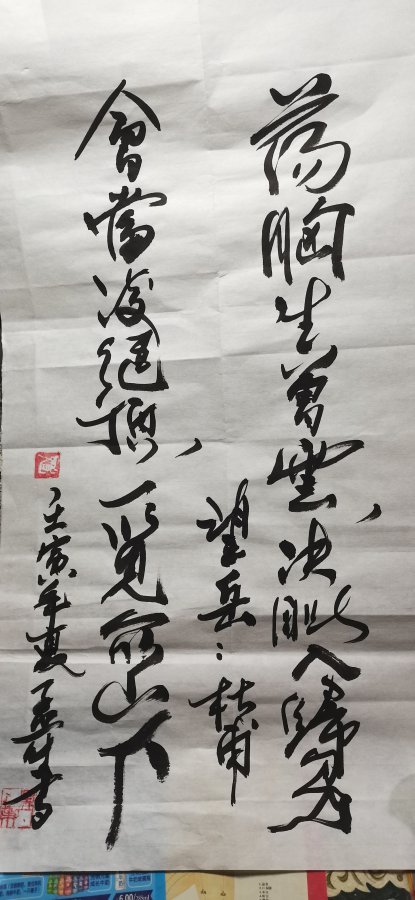 荡胸生曾云，决眦入归鸟
会当凌绝顶，一览众山下
望岳：杜甫
壬寅年夏
6.00